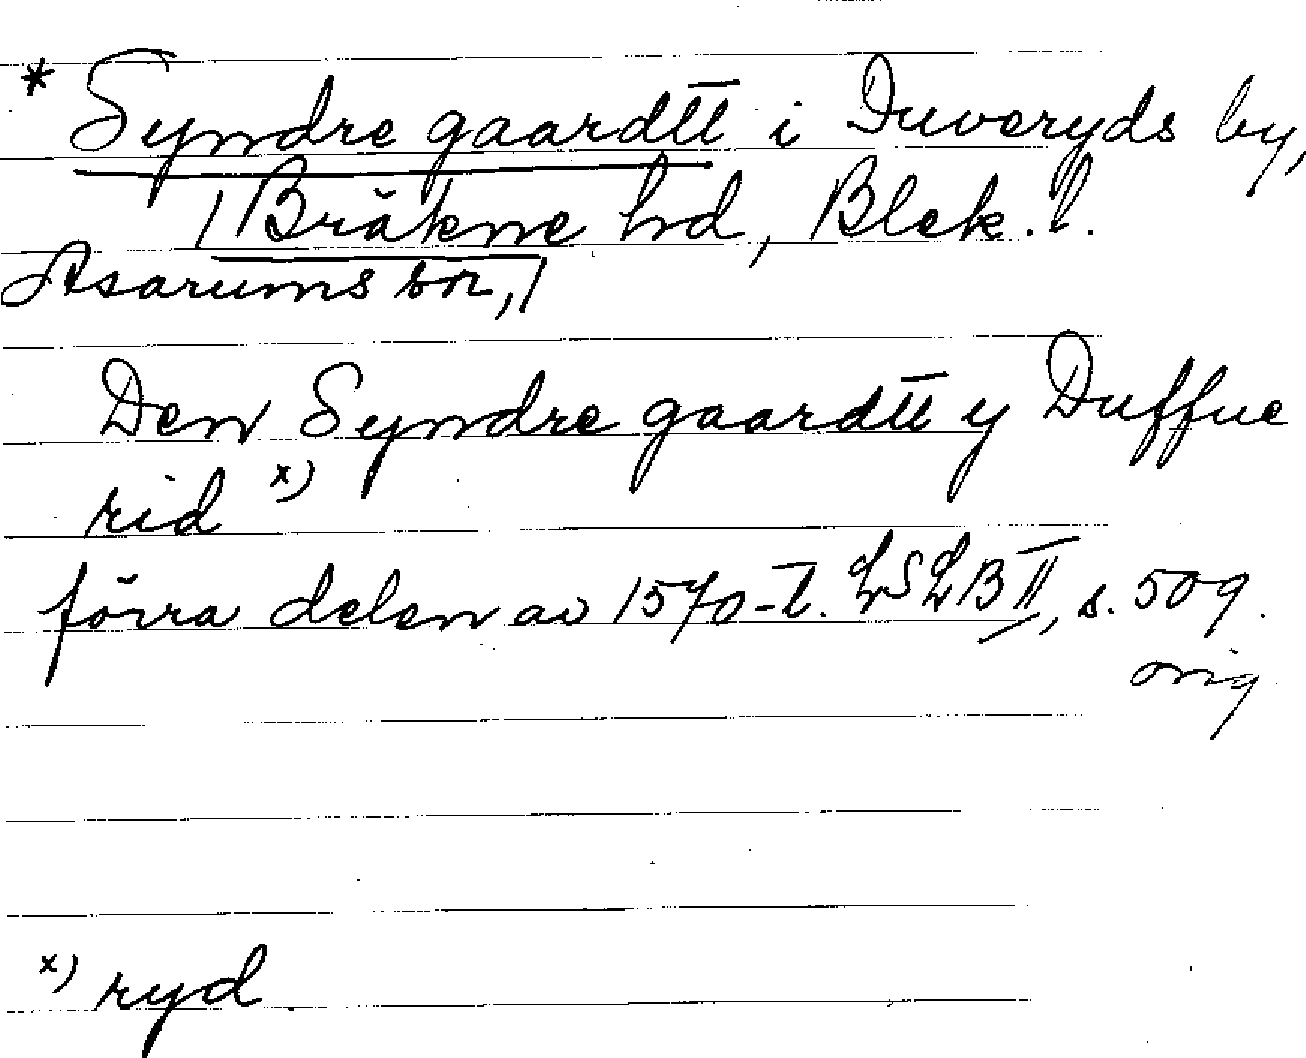 * Syndre gaardtt i Duveryds by,
| Bräkne hd, Blek. l.
Asarums sn, |
Den Syndre gaardtt y Duffue
rid x)
förra delen av 1570-t. LSLB II, s. 509.
orig
x) ryd